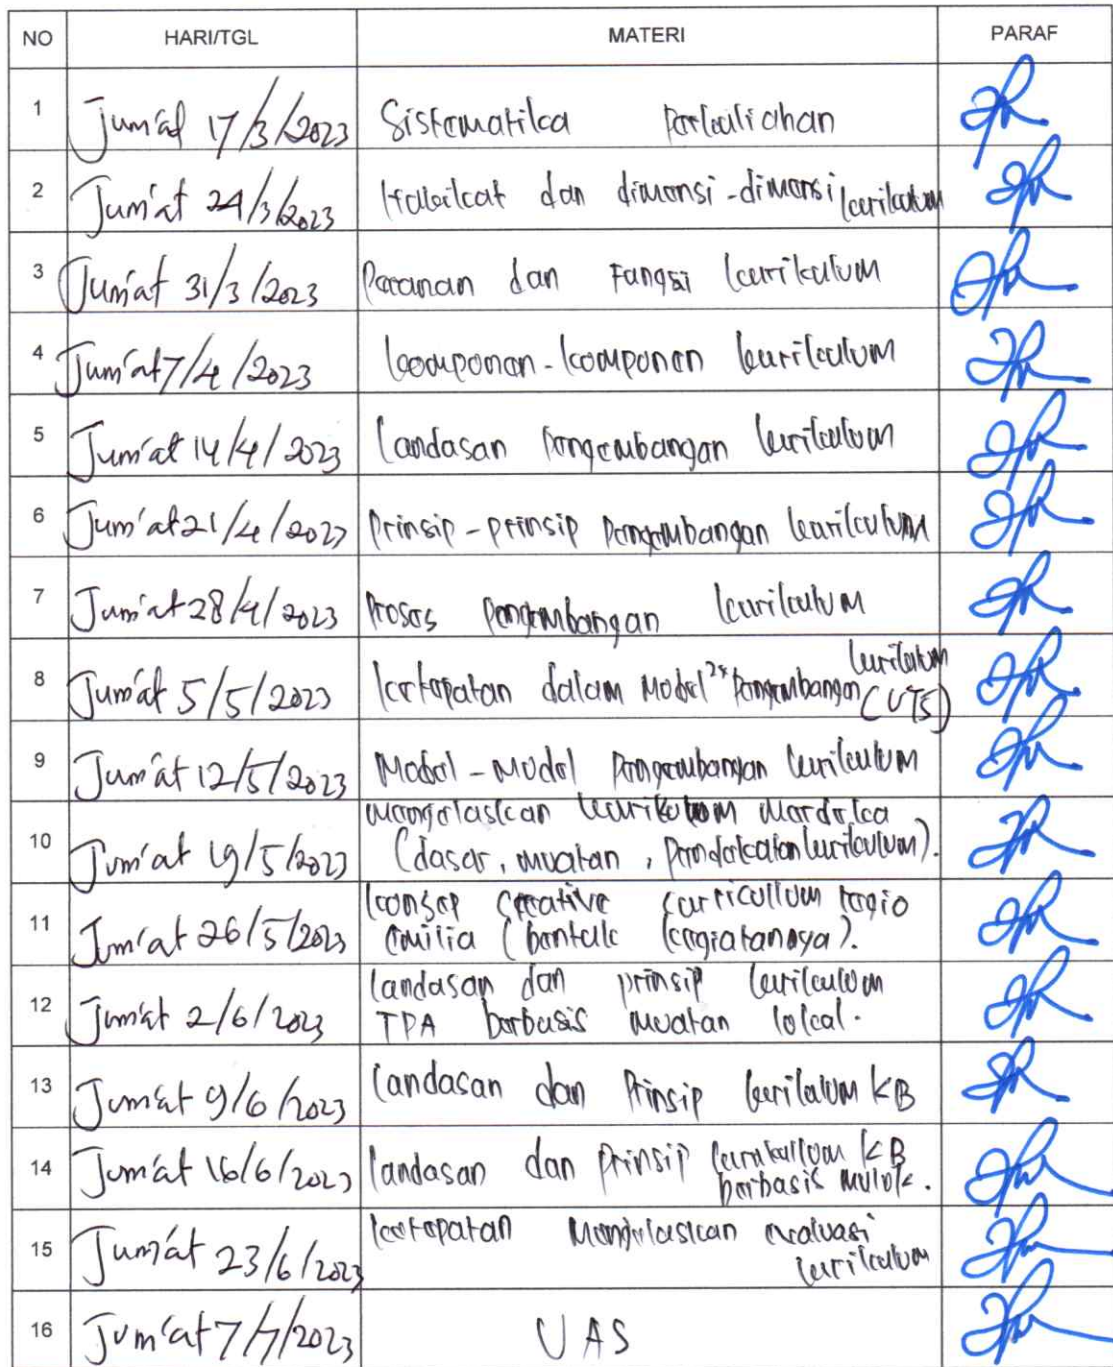 NO HARI/TGL MATERI PARAF
1 Jum'at 17/3/2023 Sistematika Perkuliahan
2 Jum'at 24/3/2023 Hakikat dan dimensi-dimensi kurikulum
3 Jum'at 31/3/2023 Peranan dan Fungsi kurikulum
4 Jum'at 7/4/2023 komponen-komponen kurikulum
5 Jum'at 14/4/2023 landasan Pengembangan kurikulum
6 Jum'at 21/4/2023 Prinsip-prinsip Pengembangan kurikulum
7 Jum'at 28/4/2023 Proses Pengembangan kurikulum
8 Jum'at 5/5/2023 ketepatan dalam Model2x Pengembangan kurikulum
(UTS)
9 Jum'at 12/5/2023 Model-Model Pengembangan kurikulum
10 Jum'at 19/5/2023 Mengelaskan kurikulum Merdeka
(dasar, muatan, Pendekatan kurikulum).
11 Jum'at 26/5/2023 konsep creative curricullum regio
emilia (bentuk kegiatannya).
12 Jum'at 2/6/2023 landasan dan prinsip kurikulum
TPA berbasis muatan lokal.
13 Jum'at 9/6/2023 landasan dan Prinsip kurikulum KB
14 Jum'at 16/6/2023 landasan dan prinsip kurikulum KB
berbasis mulok.
15 Jum'at 23/6/2023 ketepatan Mengelaskan evaluasi
kurikulum
16 Jum'at 7/7/2023 UAS